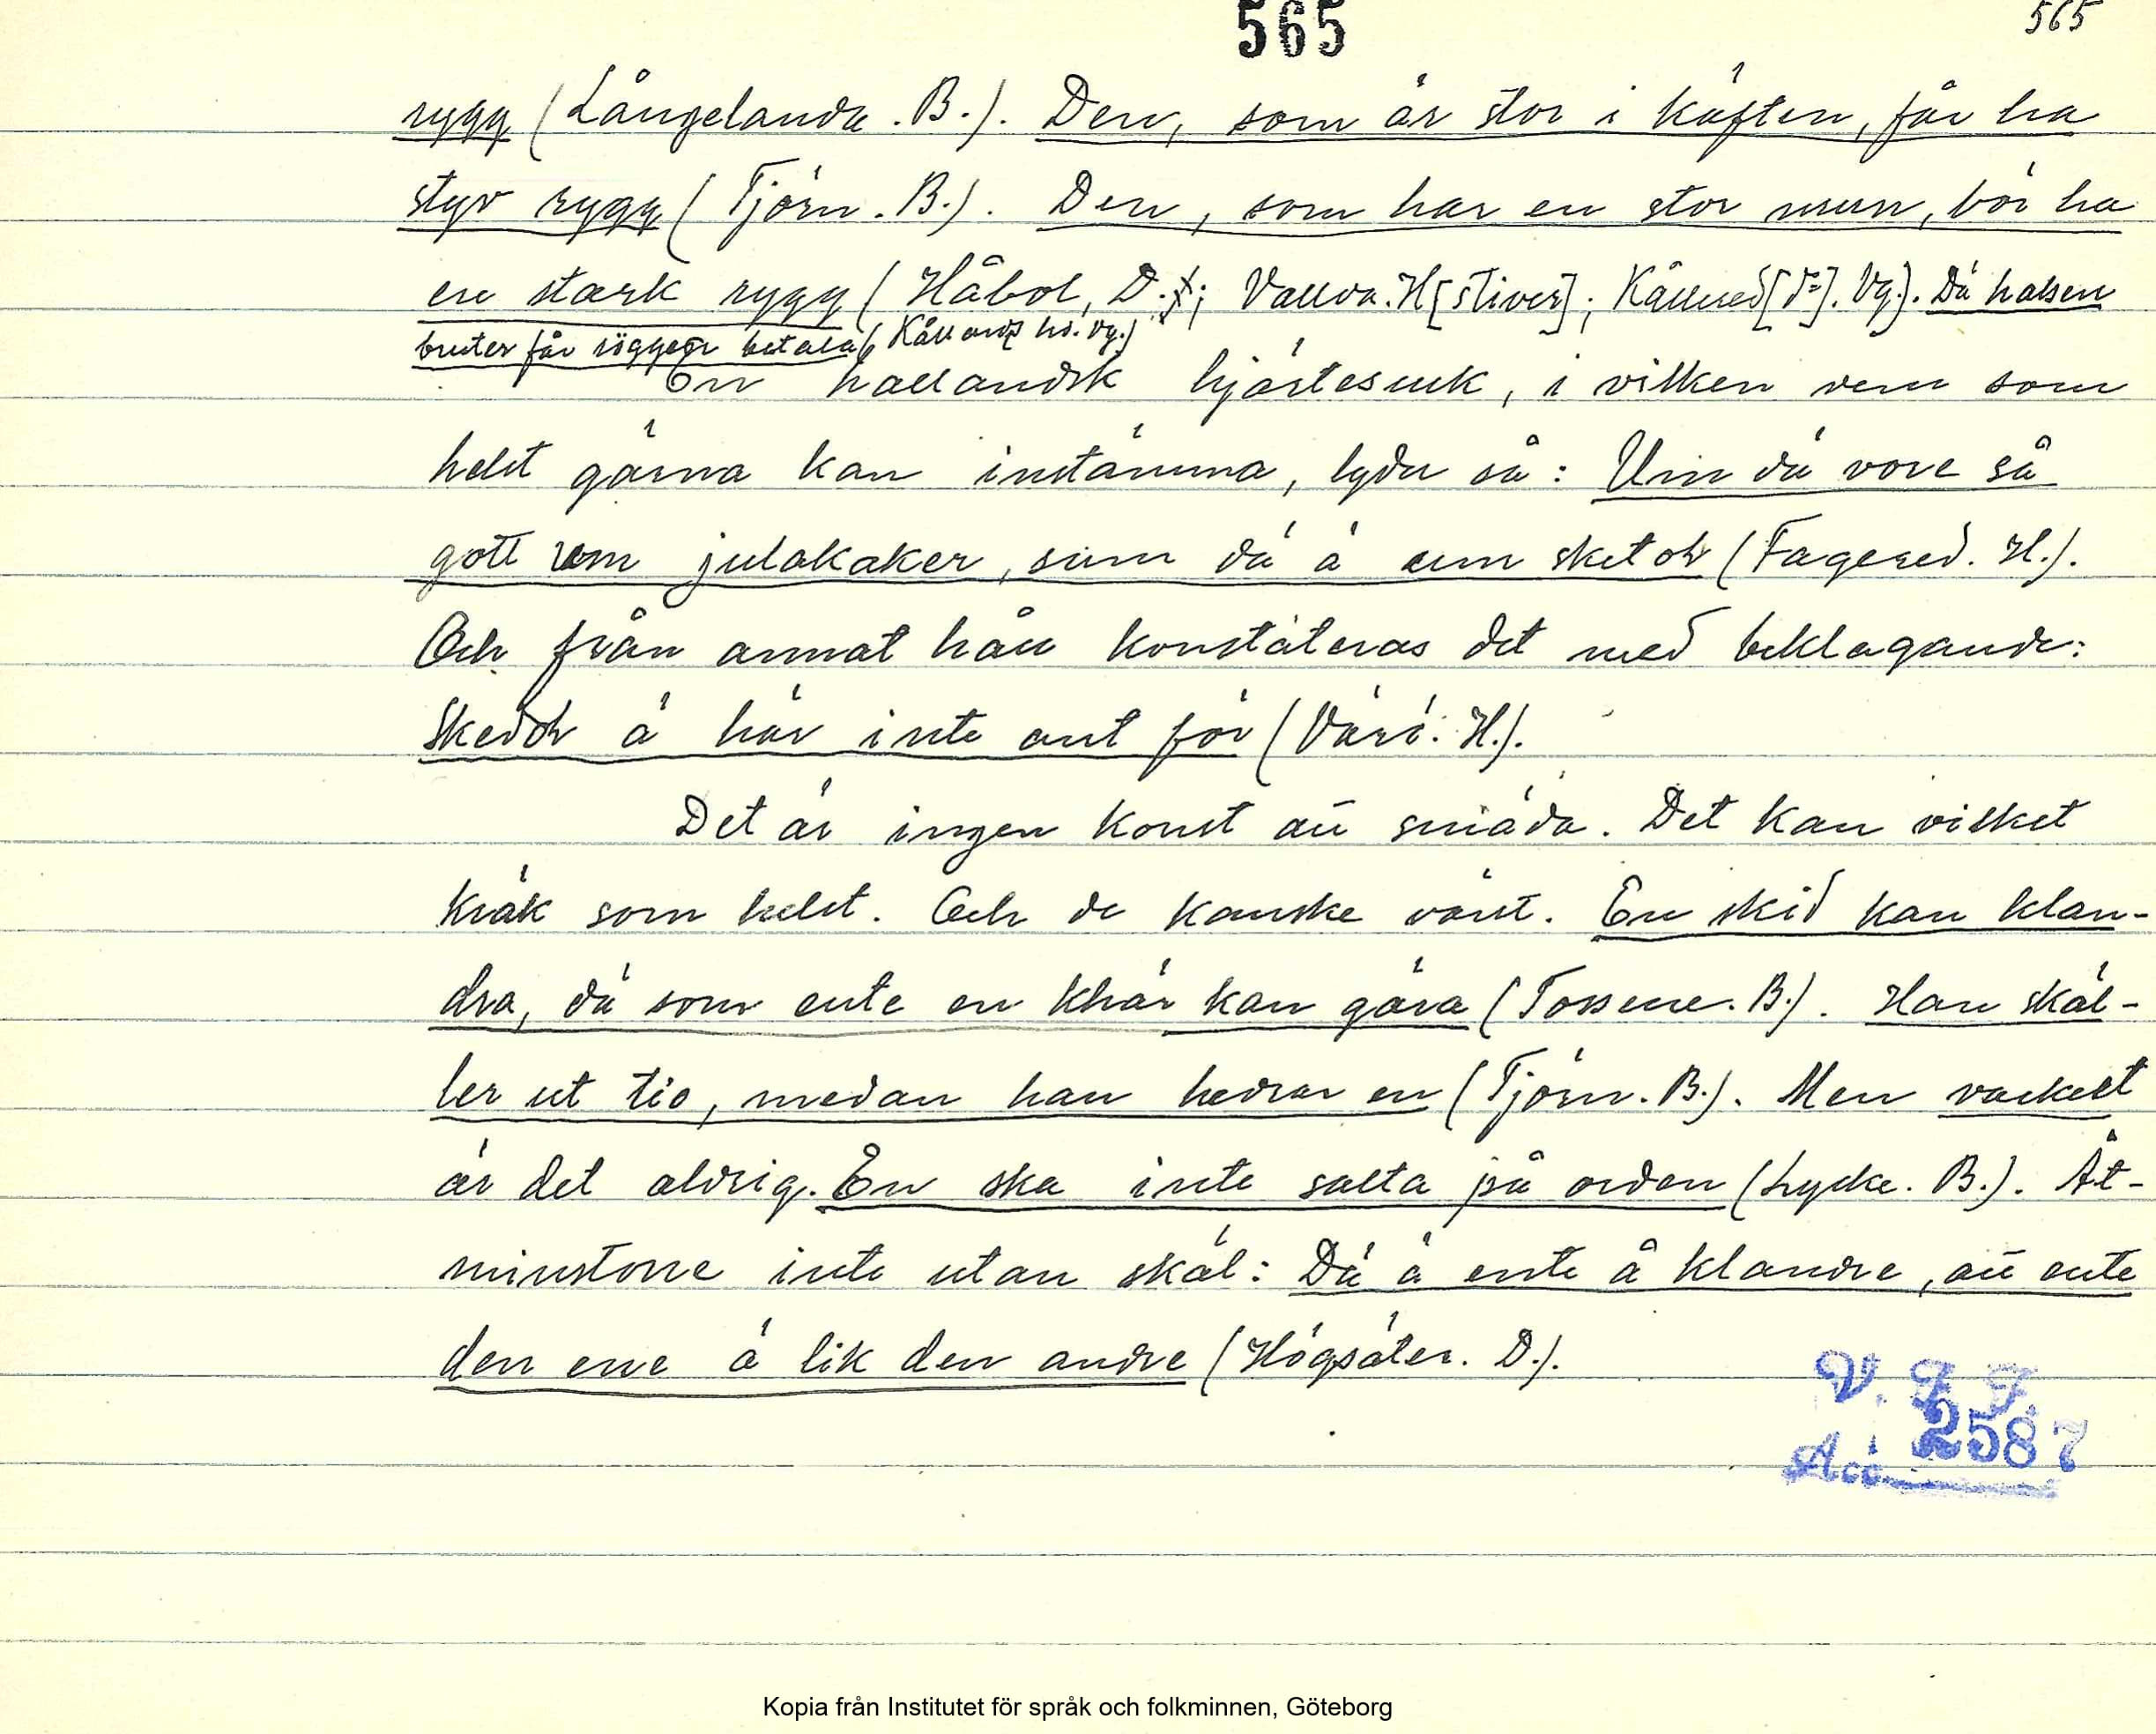 565
565
rygg (Långelanda. B.). Den, som är stor i käften, får ha
styv rygg (Tjörn. B.). Den, som har en stor mun, bör ha
en stark rygg (Håbol, D.; Valda. H[stiver]; Kållered[d:o]. Vg.). Dä halsen
bryter får röggen betala (Kållands hd. Vg.)
En halländsk hjärtesuck, i vilken vem som
helst gärna kan instämma, lyder så: Um dä vore så
gott um julakaker, sum dä ä um sketoh (Fagered. H.).
Och från annat håll konstateras det med beklagande:
Skedoh ä här inte ont för (Värö. H.).
Det är ingen konst att smäda. Det kan vilket
kräk som helst. Och de kanske värst. En skid kan klan-
dra, dä som ente en khär kan gära (Tossene. B.). Han skäl-
ler ut tio, medan han hedrar en (Tjörn. B.). Men vackert
är det aldrig. En ska inte salta på orden (Lycke. B.). Åt-
minstone inte utan skäl: Dä ä ente å klandre, att ente
den ene ä lik den andre (Högsäter. D.).
V. F. F.
Acc. 2587
Kopia från Institutet för språk och folkminnen, Göteborg